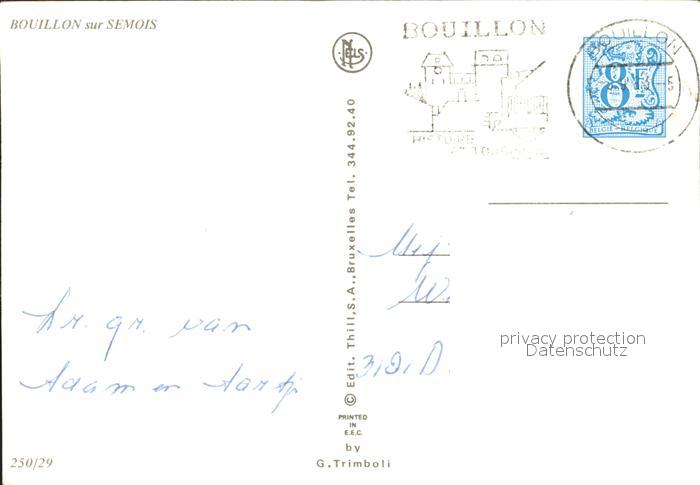 BOUILLON sur SEMOIS
NELS
BOUILLON
HISTOIRE
BOUILLON
8F
BELGIE-BELGIQUE
© Edit. Thill, S.A., Bruxelles Tel. 344.92.40
PRINTED
IN
E.E.C.
by
G. Trimboli
hr. gr. van
Adam en Aartje
Mej.
W.
privacy protection
Datenschutz
250/29